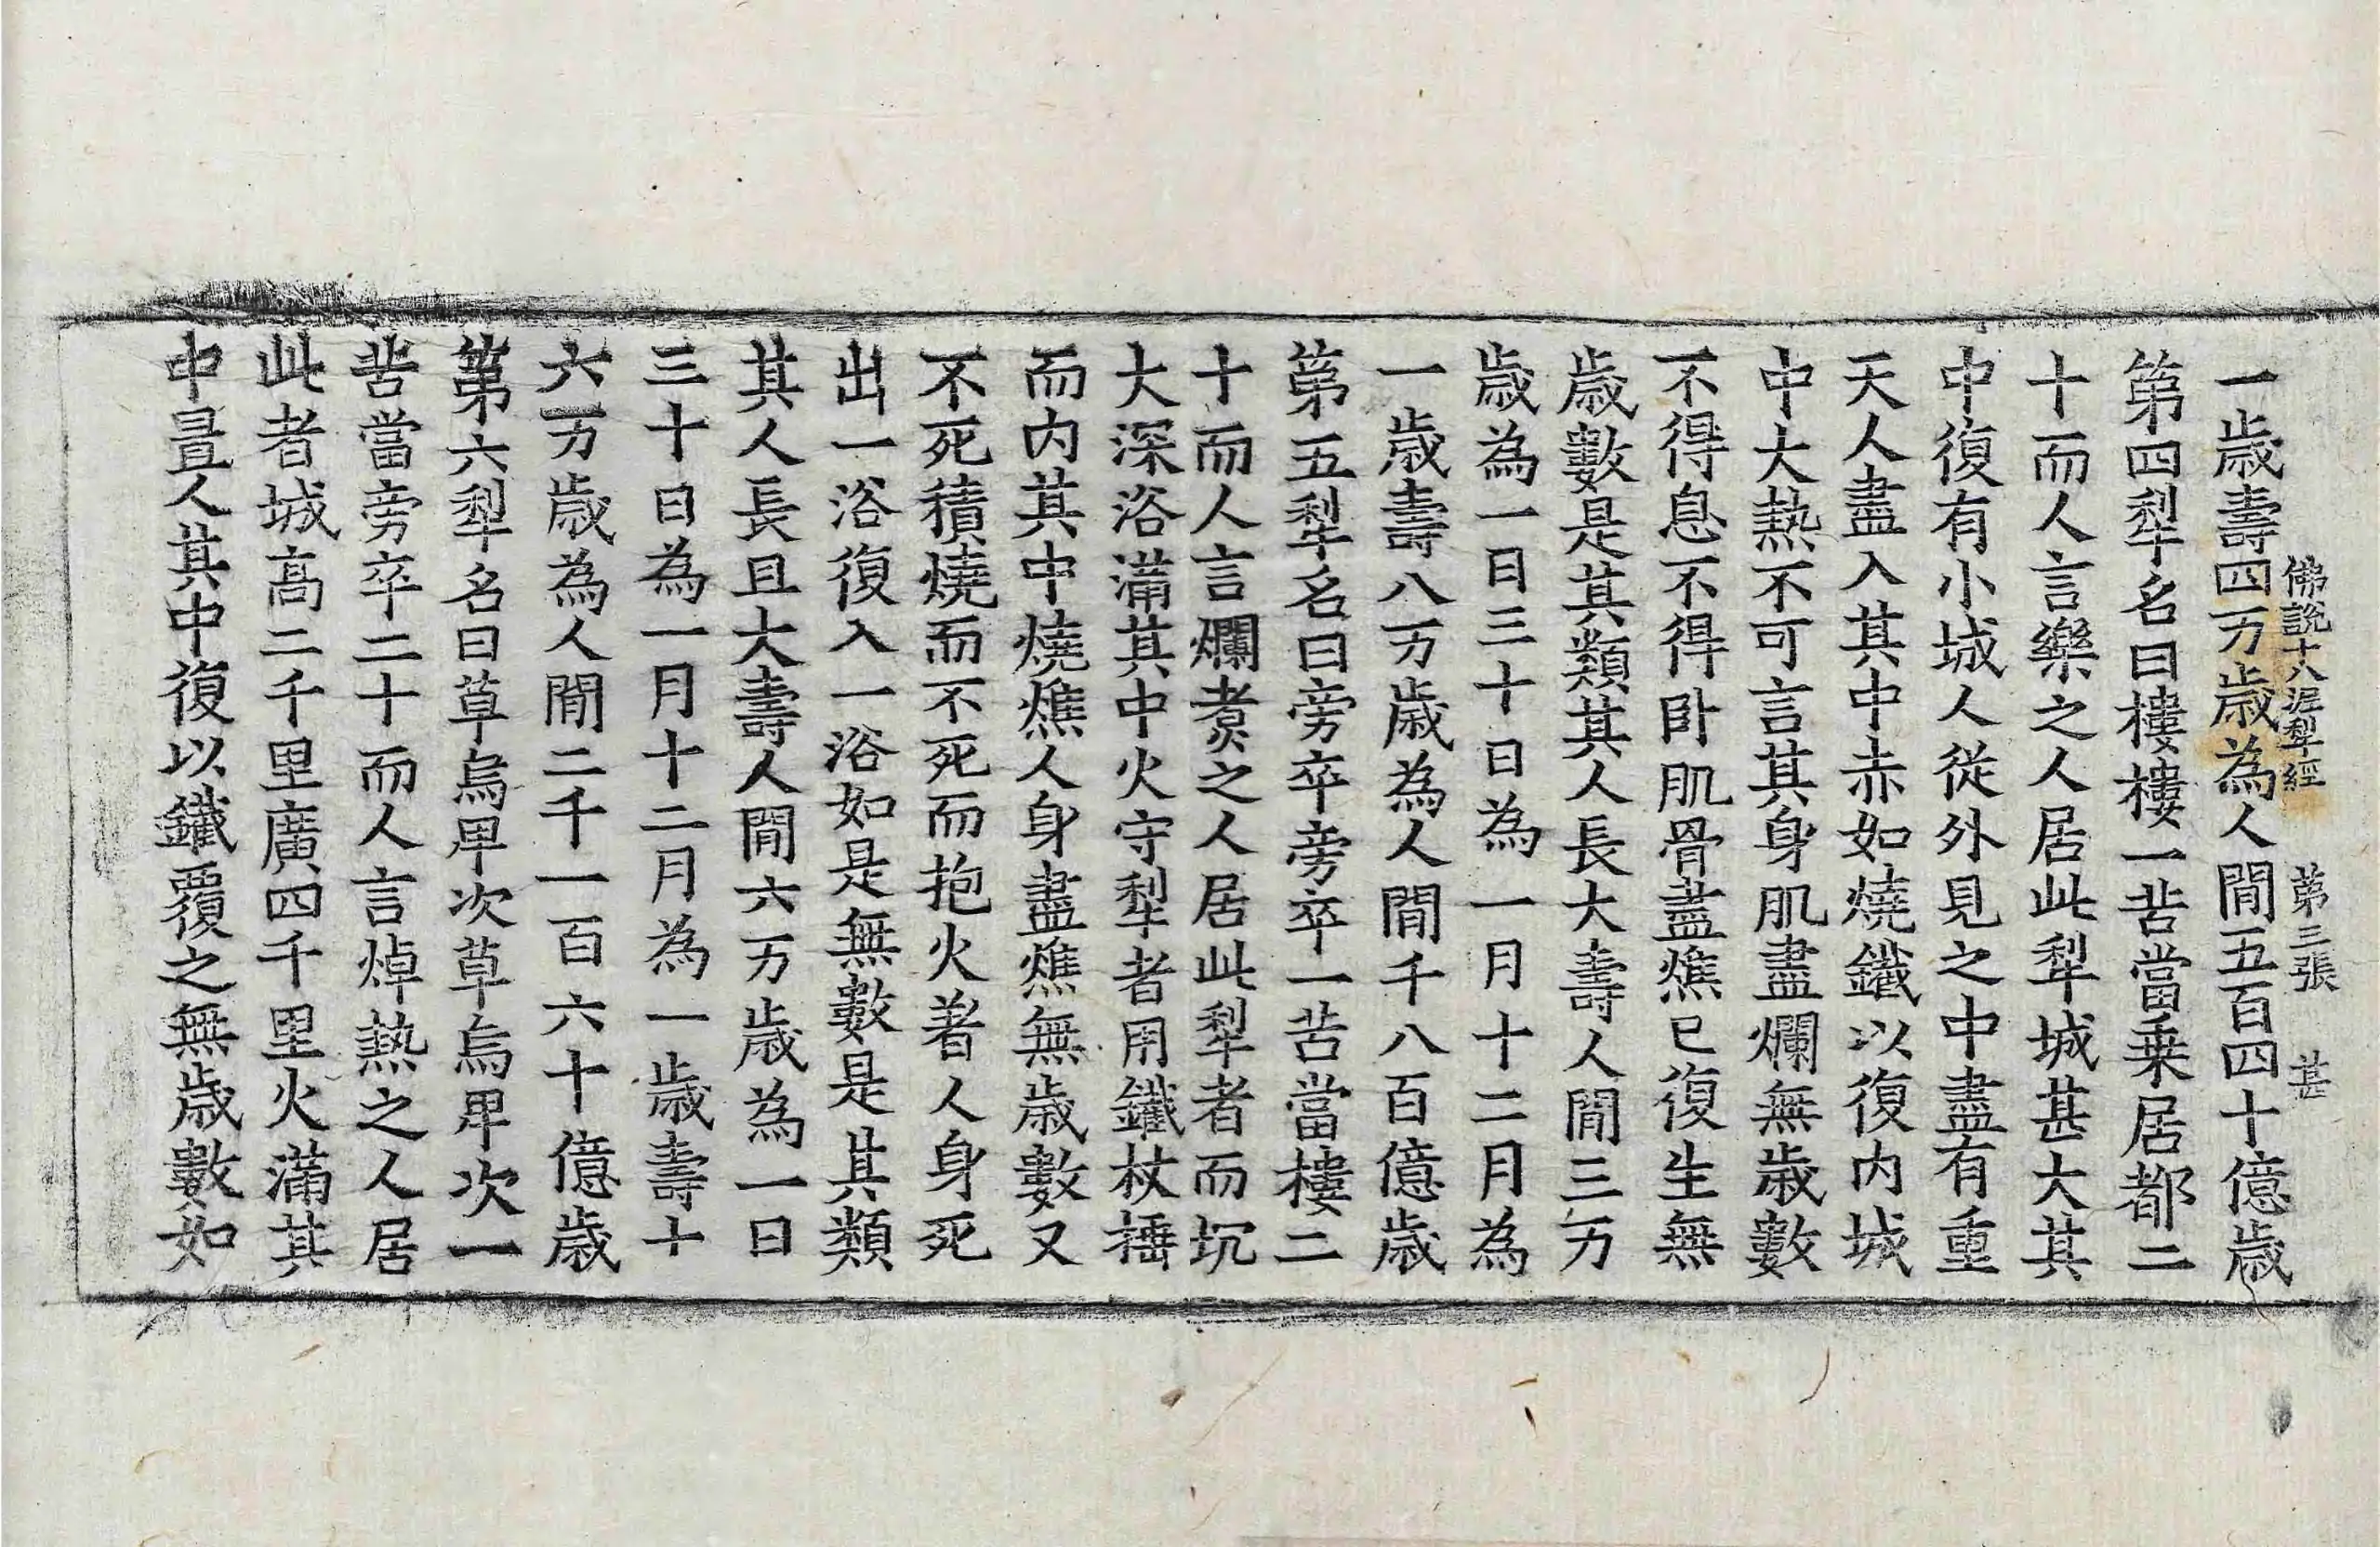 佛說十八泥犁經　第三張　甚
一歲壽四万歲為人間五百四十億歲
第四犁名曰樓樓一苦當乗居都二
十而人言樂之人居此犁城甚大其
中復有小城人從外見之中盡有重
天人盡入其中赤如燒鐵以復内城
中大熱不可言其身肌盡爛無歲數
不得息不得卧肌骨盡燋已復生無
歲數是其類其人長大壽人間三万
歲為一日三十日為一月十二月為
一歲壽八万歲為人間千八百億歲
第五犁名曰旁卒旁卒一苦當樓二
十而人言爛煑之人居此犁者而坑
大深浴滿其中火守犁者用鐵杖捶
而内其中燒燋人身盡燋無歲數又
不死積燒而不死而抱火著人身死
出一浴復入一浴如是無數是其類
其人長且大壽人間六万歲為一日
三十日為一月十二月為一歲壽十
六万歲為人間二千一百六十億歲
第六犁名曰草烏卑次草烏卑次一
苦當旁卒二十而人言焯熱之人居
此者城高二千里廣四千里火滿其
中置人其中復以鐵覆之無歲數如